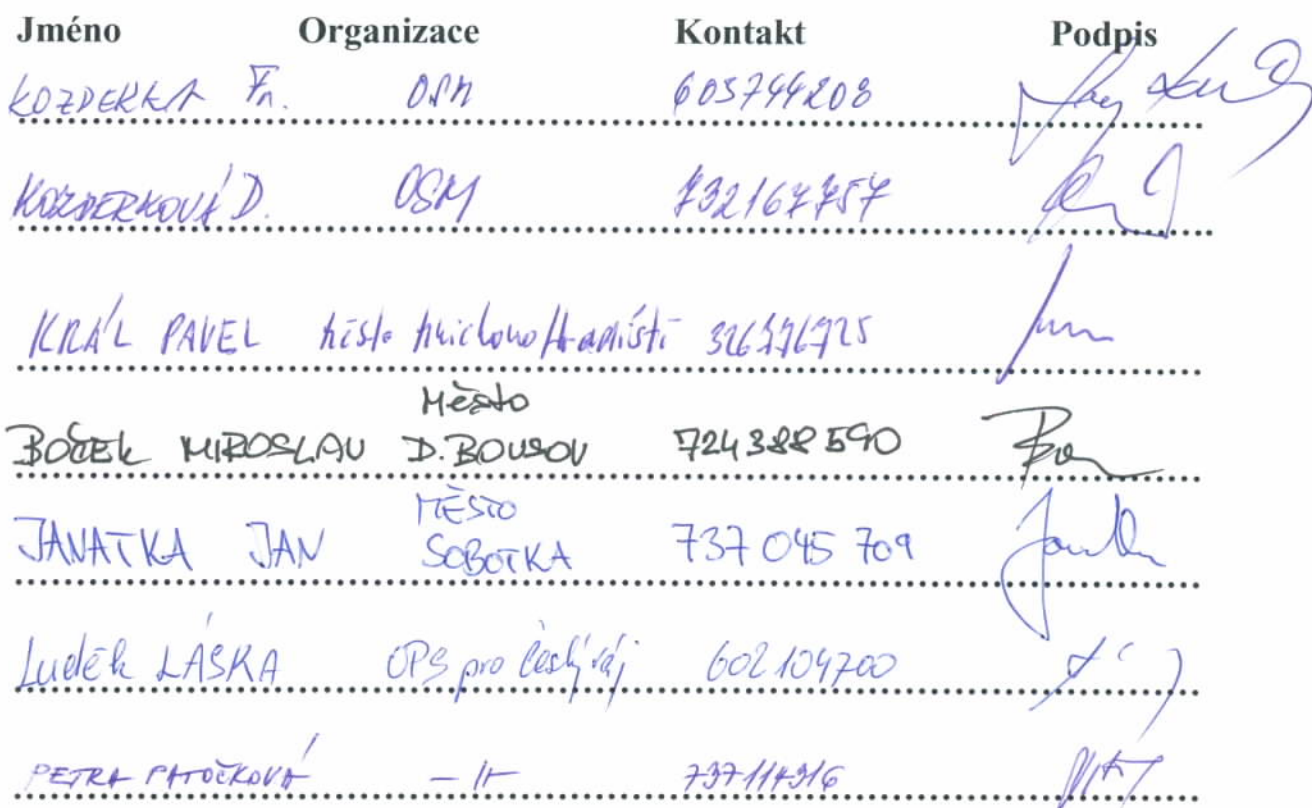 Jméno Organizace Kontakt Podpis
KOZDERKA Fr. OSM 605744208
KOZDERKOVÁ D. OSM 732167757
KRÁL PAVEL město Mnichovo Hradiště 326776725
Město
BOČEK MIROSLAV D. BOUSOV 724388590
MĚSTO
JANATKA JAN SOBOTKA 737 045 709
Luděk LÁSKA OPS pro Český ráj 602104700
PETRA PATOČKOVÁ -II- 737114316